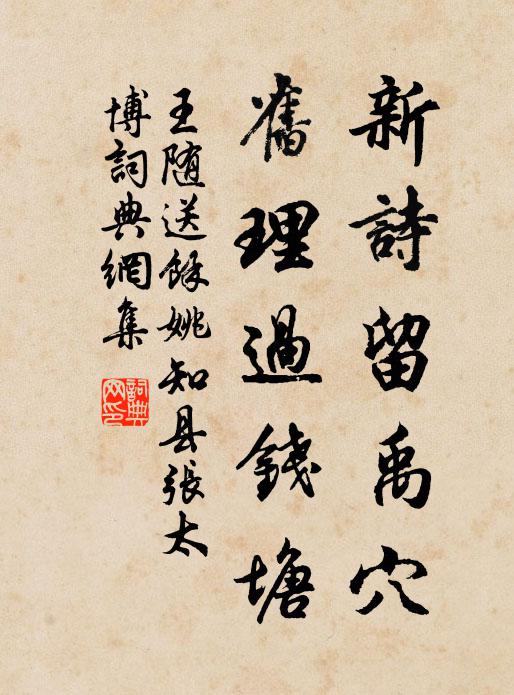 新詩留禹穴
舊理過錢塘
王随送餘姚知县張太
博詞典網集
詞典
网印